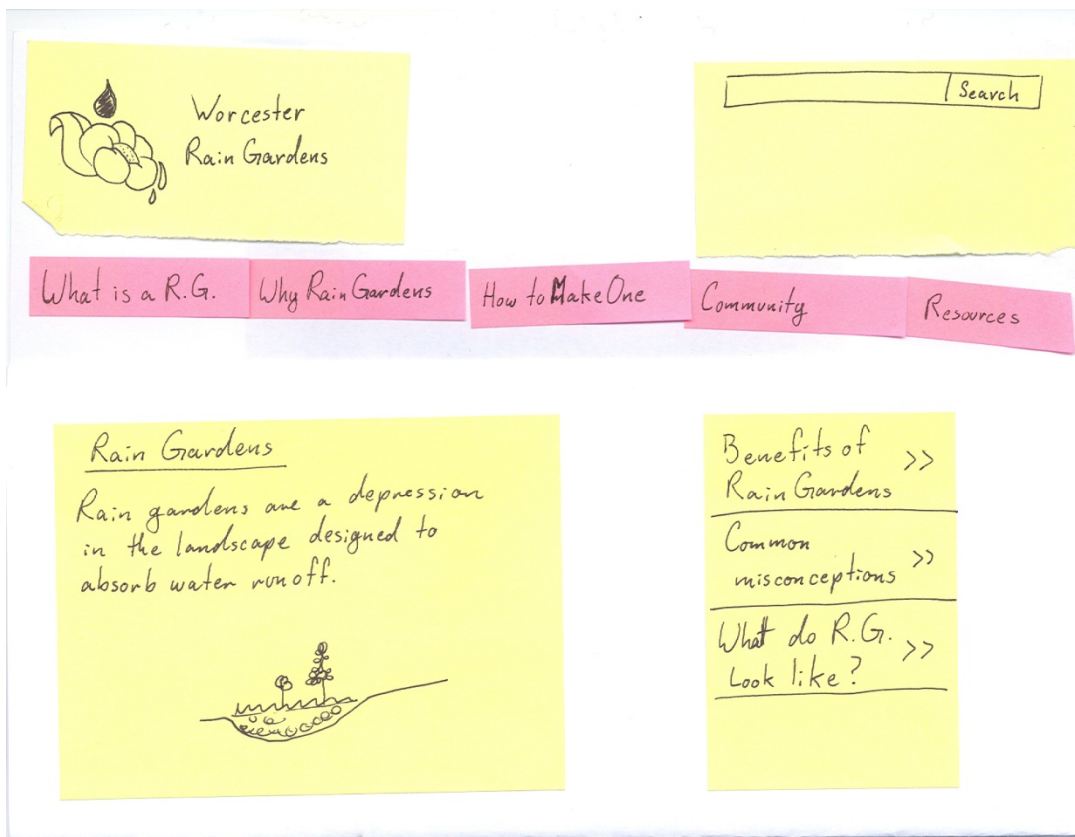 Worcester
Rain Gardens
Search
What is a R.G.
Why Rain Gardens
How to Make One
Community
Resources
Rain Gardens
Rain gardens are a depression
in the landscape designed to
absorb water runoff.
Benefits of >>
Rain Gardens
Common
misconceptions >>
What do R.G. >>
Look like?